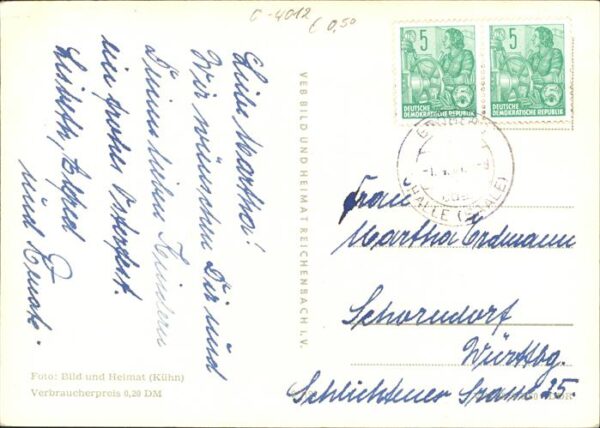 C-4012
€ 0,50
Liebe Martha!
Wir wünschen Dir und
Deinen lieben Kindern
ein frohes Osterfest.
Lisbeth, Alfred
und Renate.
VEB BILD UND HEIMAT REICHENBACH I. V.
Foto: Bild und Heimat (Kühn)
Verbraucherpreis 0,20 DM
5
DEUTSCHE
DEMOKRATISCHE REPUBLIK
5
DEUTSCHE
DEMOKRATISCHE REPUBLIK
HALLE (SAALE)
Frau
Martha Erdmann
Schorndorf
Württbg.
Schlichtener Strasse 25.